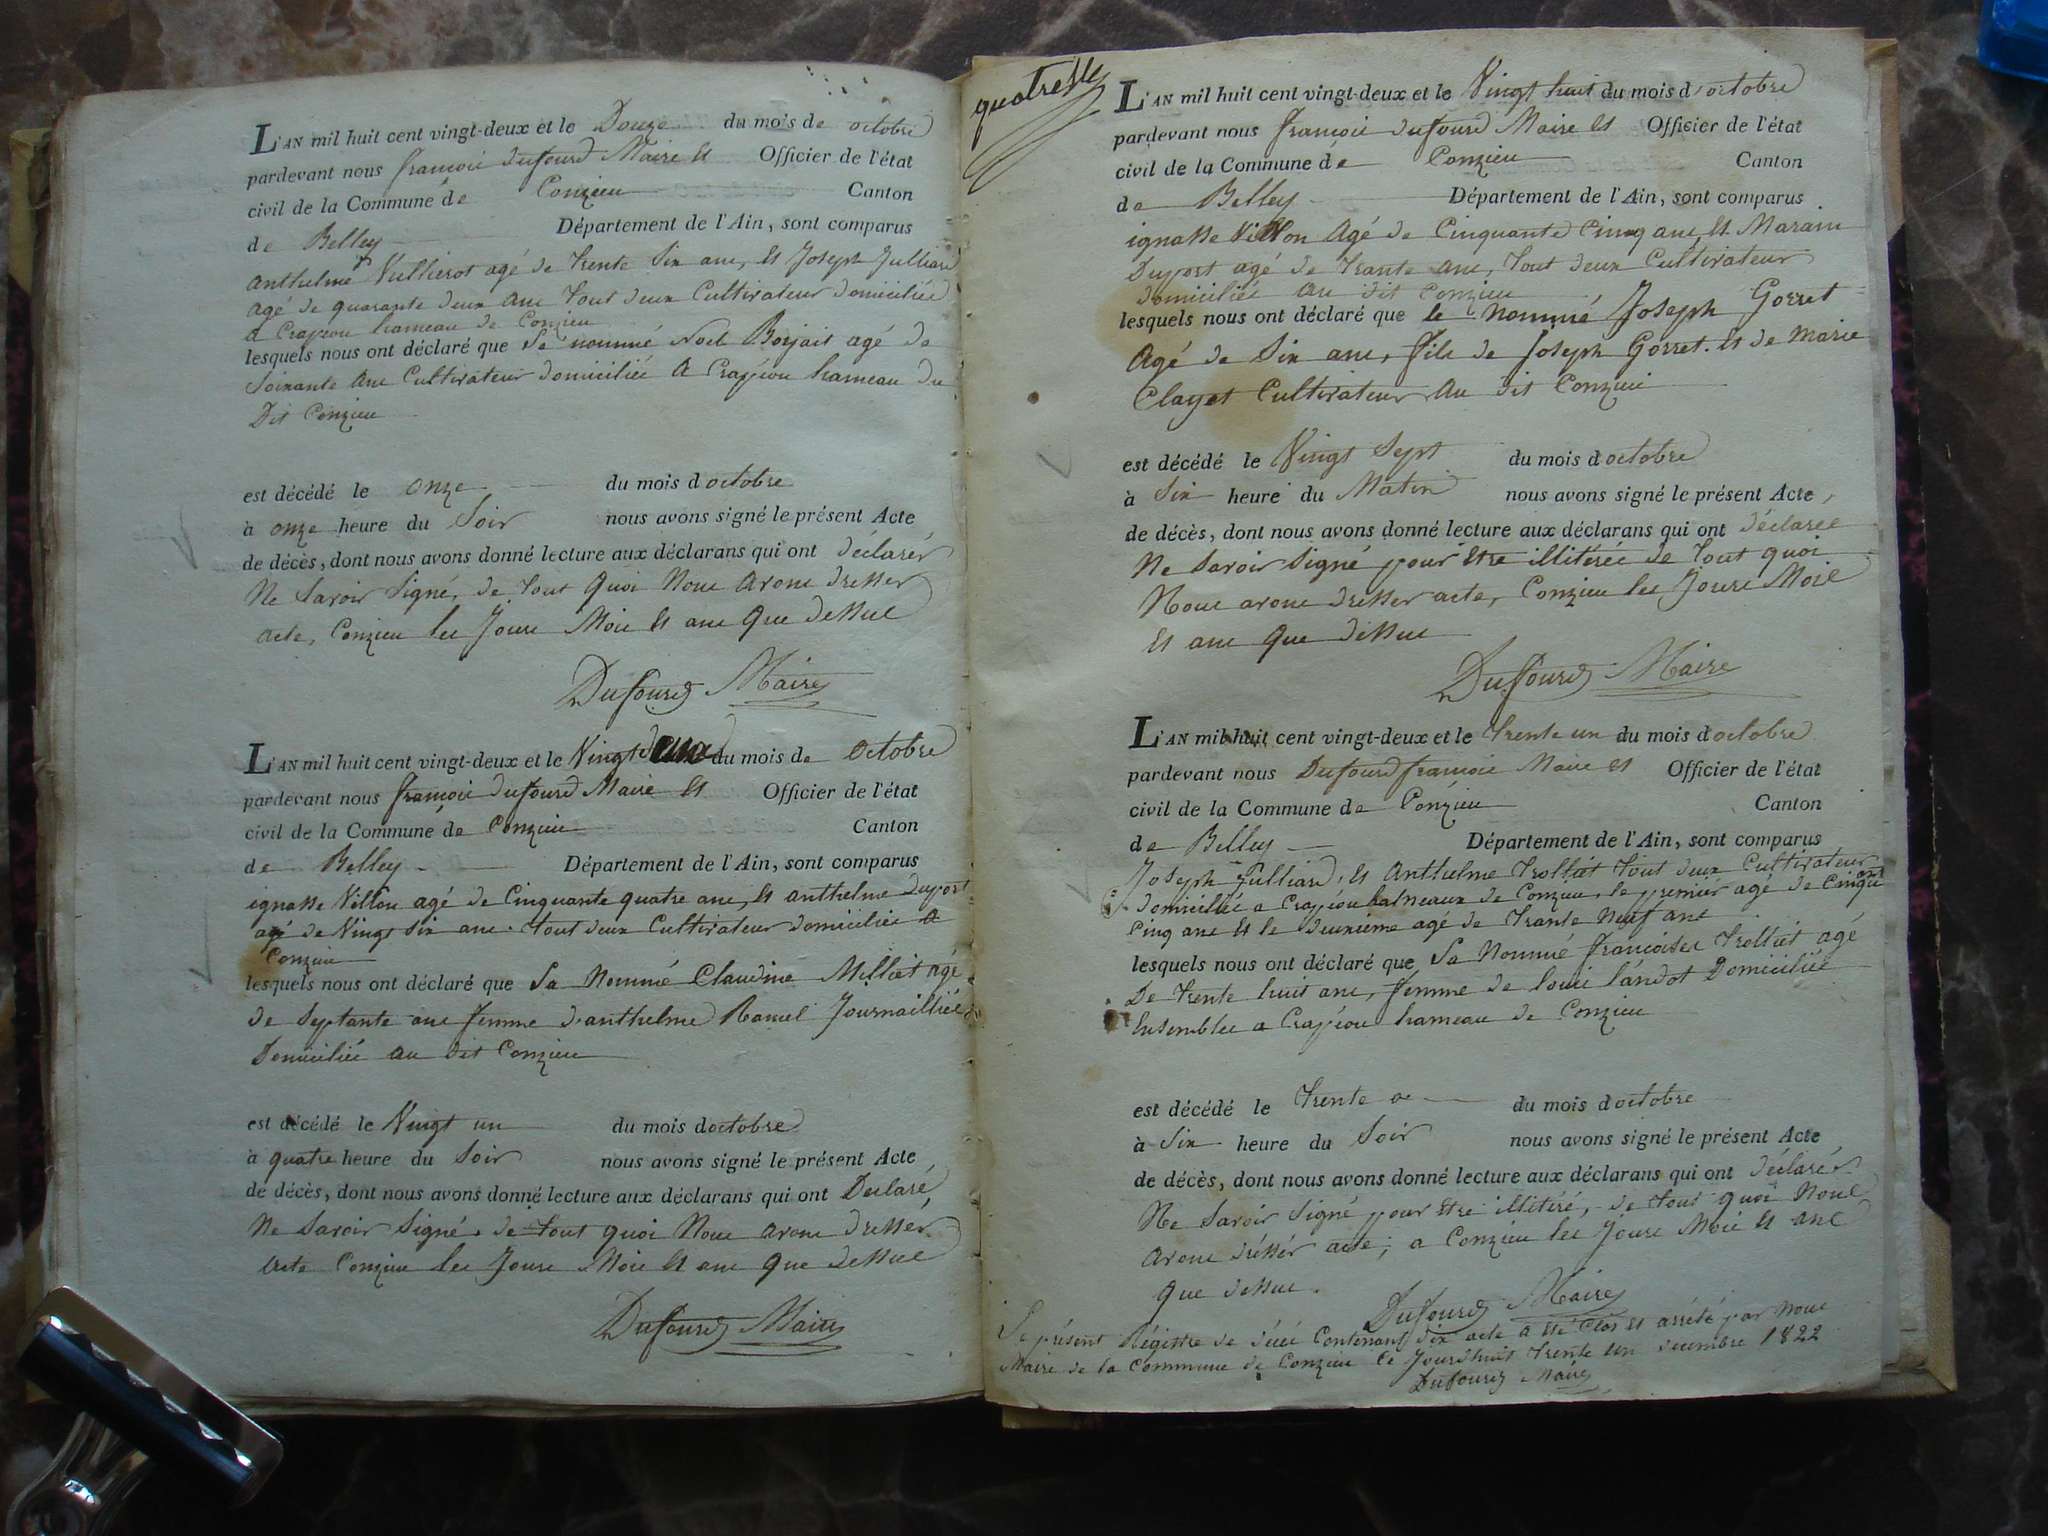 L'AN mil huit cent vingt-deux et le Douze du mois de octobre
pardevant nous françoie dufourd Maire Et Officier de l'état
civil de la Commune de Conzieu Canton
de Belley Département de l'Ain, sont comparus
anthelme Vullierot agé de trente Six ans, Et Joseph Julliard
agé de quarante deux ans tout deux Cultivateur domiciliée
a Crapéou hameau de Conzieu
lesquels nous ont déclaré que Le nommé Noel Borjait agé de
Soixante ans Cultivateur domiciliée A Crapéou hameau du
Dit Conzieu
est décédé le onze du mois doctobre
à onze heure du Soir nous avons signé le présent Acte
de décès, dont nous avons donné lecture aux déclarans qui ont déclarér
Ne Savoir Signé, de tout Quoi Nous Avons dresser
acte, Conzieu les Jours Mois Et ans Que dessus
Dufourd Maire
L'AN mil huit cent vingt-deux et le Vingt deux du mois de octobre
pardevant nous françoie dufourd Maire Et Officier de l'état
civil de la Commune de Conzieu Canton
de Belley Département de l'Ain, sont comparus
ignasse Villon agé de Cinquante quatre ans, Et anthelme duport
agé de Vingt Six ans. tout deux Cultivateur domiciliée a
Conzieu
lesquels nous ont déclaré que La Nommé Claudine Milliet agé
de Septante ans femme d'anthelme Ramel Journailliée
Domiciliée au dit Conzieu
est décédé le Vingt un du mois doctobre
à quatre heure du Soir nous avons signé le présent Acte
de décès, dont nous avons donné lecture aux déclarans qui ont Declaré,
Ne Savoir Signé, de tout quoi Nous avons dressér
acte Conzieu les Jours Mois Et ans que dessus
Dufourd Maire
quatre
L'AN mil huit cent vingt-deux et le Vingt huit du mois d'octobre
pardevant nous françoie dufourd Maire Et Officier de l'état
civil de la Commune de Conzieu Canton
de Belley Département de l'Ain, sont comparus
ignasse Villon Agé de Cinquante Cinq ans, Et Marain
Duport agé de trante ans, tout deux Cultivateur
domiciliée au dit Conzieu
lesquels nous ont déclaré que le nommé Joseph Gorret
Agé de Six ans, fils de Joseph Gorret. Et de Marie
Clayet Cultivateur Au dit Conzieu
est décédé le Vingt Sept du mois doctobre
à Six heure du Matin nous avons signé le présent Acte,
de décès, dont nous avons donné lecture aux déclarans qui ont déclarée
Ne Savoir Signé pour Etre illitérée de tout quoi
Nous avons dresser acte, Conzieu les Jours Mois
Et ans que dessus
Dufourd Maire
L'AN mil huit cent vingt-deux et le trente un du mois doctobre
pardevant nous Dufourd françoie Maire Et Officier de l'état
civil de la Commune de Conzieu Canton
de Belley Département de l'Ain, sont comparus
Joseph Julliard, Et Anthelme trolliet tout deux Cultivateur
domiciliée a Crapéou hameaux de Conzieu, le premier agé de Cinquante
Cinq ans Et le deuxième agé de trante Neuf ans
lesquels nous ont déclaré que La Nommé françoise trolliet agé
De trente huit ans, femme de louis landot Domiciliée
Ensemblee a Crapéou hameau de Conzieu
est décédé le trente du mois doctobre
à Six heure du Soir nous avons signé le présent Acte
de décès, dont nous avons donné lecture aux déclarans qui ont déclarér
Ne Savoir Signé pour Etre illitéré, de tout quoi Nous
avons dréssér acte; a Conzieu les Jours Mois Et ans
que dessus.
Dufourd Maire
Le présent Régistre de décé Contenant dix acte a été Clos Et arrété par Nous
Maire de la Commune de Conzieu Ce Jourdhuit trente un decembre 1822
Dufourd Maire